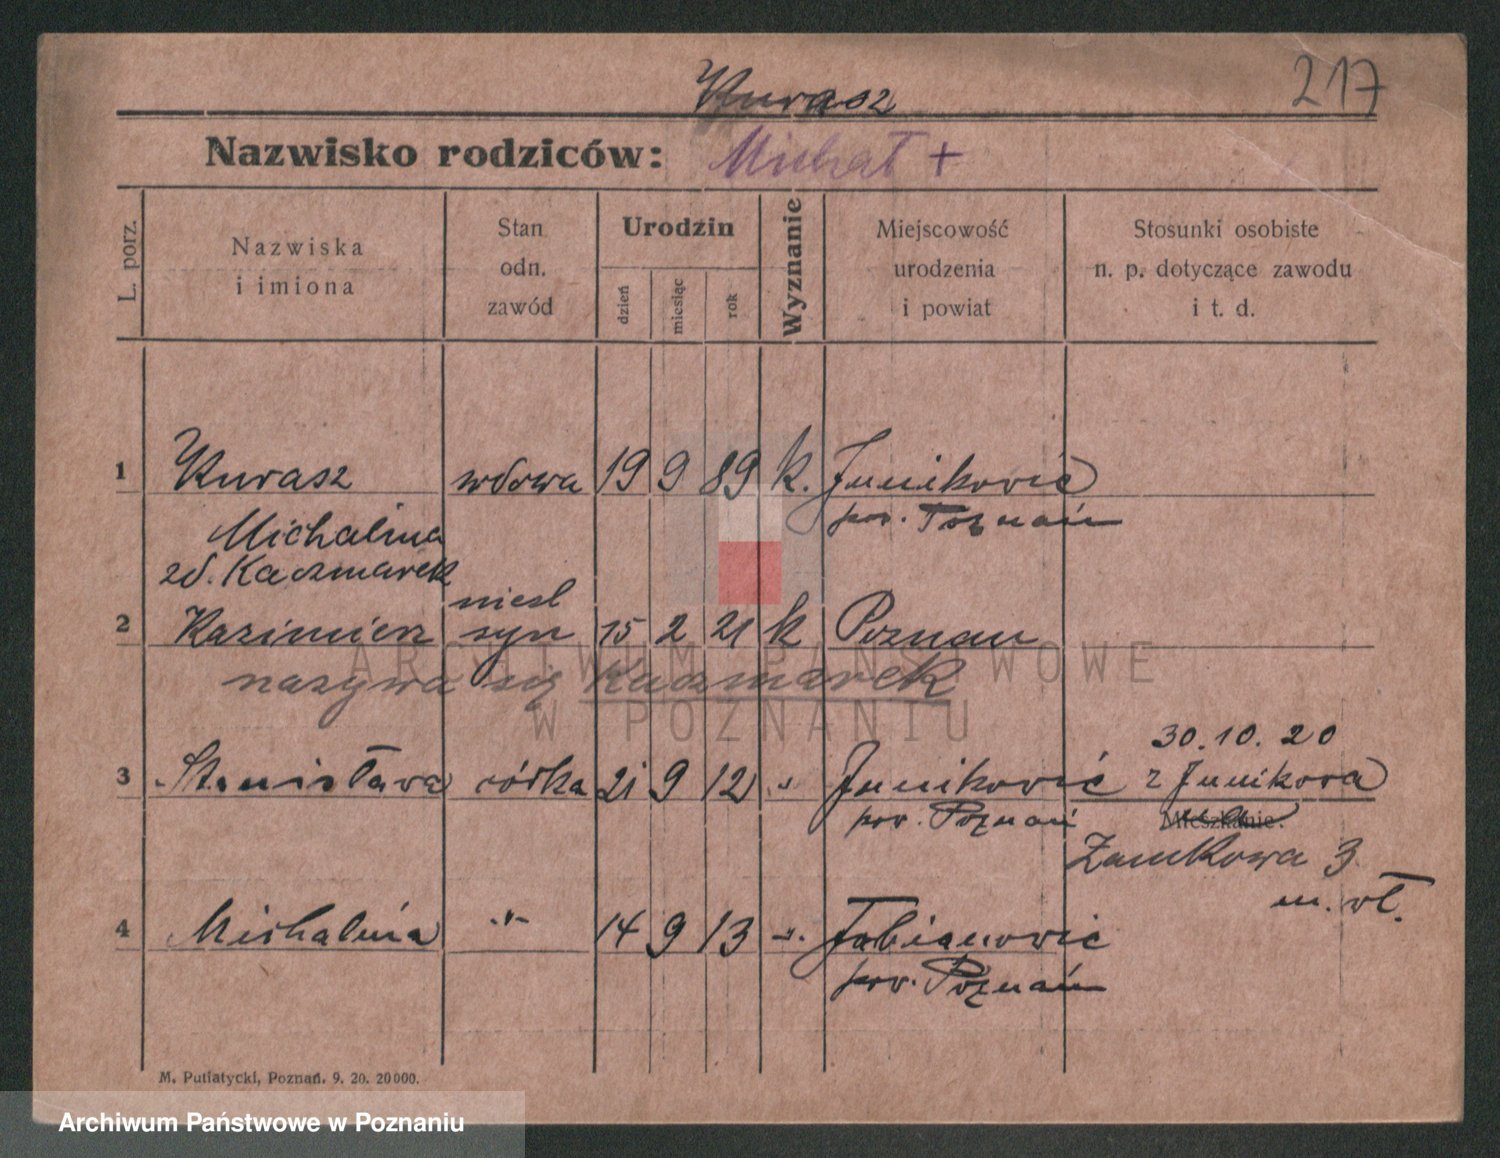 217
Kurasz
Nazwisko rodziców: Michał +
L. porz.
Nazwiska
i imiona
Stan
odn.
zawód
Urodzin
dzień
miesiąc
rok
Wyznanie
Miejscowość
urodzenia
i powiat
Stosunki osobiste
n. p. dotyczące zawodu
i t. d.
1 Kurasz wdowa 19 9 89 k. Junikowić
pow. Poznań
Michalina
zd. Kaczmarek
niesl
2 Kazimierz syn 15 2 21 k Poznań
nazywa się Kaczmarek
ARCHIWUM PAŃSTWOWE
W POZNANIU
30.10.20
3 Stanisława córka 21 9 12 " Junikowić z Junikowa
pow. Poznań Mieszkanie.
Zamkowa 3
m. wł.
4 Michalina " 14 9 13 " Fabianowić
pow. Poznań
M. Putiatycki, Poznań. 9. 20. 20000.
Archiwum Państwowe w Poznaniu